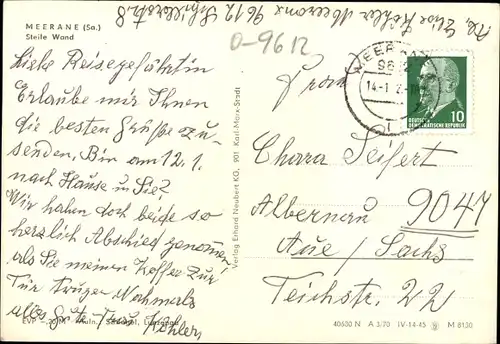 MEERANE (Sa.)
Steile Wand
Liebe Reisegefährtin
Erlaube mir Ihnen
die besten Grüße zu-
senden, Bin am 12.1.
nach Hause u Sie?
Wir haben doch beide so
herzlich Abschied genommen,
als Sie meinen Koffer zur
Tür trugen Nochmals
alles Gute Frau Köhler
Verlag Erhard Neubert KG, 901 Karl-Marx-Stadt
Elise Köhler Meerane 9612
0-9612
MEERANE
14-1
10
DEUTSCHE
DEMOKRATISCHE REPUBLIK
Frau
Chara Seifert
Albernau 9047
Aue / Sachs
Teichstr. 22
40600 N A 3/70 IV-14-45 M 8150